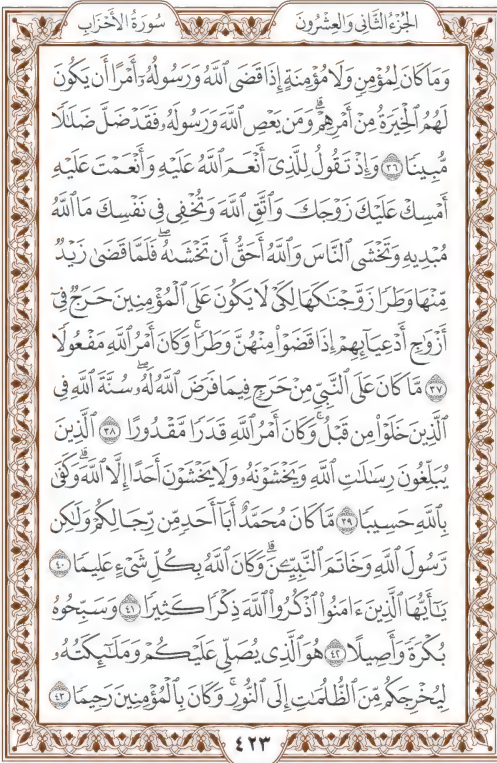 الجُزْءُ الثَّانِي وَالعِشْرُونَ
سُورَةُ الأَحْزَابِ
وَمَا كَانَ لِمُؤْمِنٍ وَلَا مُؤْمِنَةٍ إِذَا قَضَى ٱللَّهُ وَرَسُولُهُۥٓ أَمْرًا أَن يَكُونَ
لَهُمُ ٱلْخِيَرَةُ مِنْ أَمْرِهِمْ ۗ وَمَن يَعْصِ ٱللَّهَ وَرَسُولَهُۥ فَقَدْ ضَلَّ ضَلَٰلًا
مُّبِينًا ٣٦ وَإِذْ تَقُولُ لِلَّذِىٓ أَنْعَمَ ٱللَّهُ عَلَيْهِ وَأَنْعَمْتَ عَلَيْهِ
أَمْسِكْ عَلَيْكَ زَوْجَكَ وَٱتَّقِ ٱللَّهَ وَتُخْفِى فِى نَفْسِكَ مَا ٱللَّهُ
مُبْدِيهِ وَتَخْشَى ٱلنَّاسَ وَٱللَّهُ أَحَقُّ أَن تَخْشَىٰهُ ۖ فَلَمَّا قَضَىٰ زَيْدٌ
مِّنْهَا وَطَرًا زَوَّجْنَٰكَهَا لِكَىْ لَا يَكُونَ عَلَى ٱلْمُؤْمِنِينَ حَرَجٌ فِىٓ
أَزْوَٰجِ أَدْعِيَآئِهِمْ إِذَا قَضَوْا۟ مِنْهُنَّ وَطَرًا ۚ وَكَانَ أَمْرُ ٱللَّهِ مَفْعُولًا
٣٧ مَّا كَانَ عَلَى ٱلنَّبِىِّ مِنْ حَرَجٍ فِيمَا فَرَضَ ٱللَّهُ لَهُۥ ۖ سُنَّةَ ٱللَّهِ فِى
ٱلَّذِينَ خَلَوْا۟ مِن قَبْلُ ۚ وَكَانَ أَمْرُ ٱللَّهِ قَدَرًا مَّقْدُورًا ٣٨ ٱلَّذِينَ
يُبَلِّغُونَ رِسَٰلَٰتِ ٱللَّهِ وَيَخْشَوْنَهُۥ وَلَا يَخْشَوْنَ أَحَدًا إِلَّا ٱللَّهَ ۗ وَكَفَىٰ
بِٱللَّهِ حَسِيبًا ٣٩ مَّا كَانَ مُحَمَّدٌ أَبَآ أَحَدٍ مِّن رِّجَالِكُمْ وَلَٰكِن
رَّسُولَ ٱللَّهِ وَخَاتَمَ ٱلنَّبِيِّـۧنَ ۗ وَكَانَ ٱللَّهُ بِكُلِّ شَىْءٍ عَلِيمًا ٤٠
يَٰٓأَيُّهَا ٱلَّذِينَ ءَامَنُوا۟ ٱذْكُرُوا۟ ٱللَّهَ ذِكْرًا كَثِيرًا ٤١ وَسَبِّحُوهُ
بُكْرَةً وَأَصِيلًا ٤٢ هُوَ ٱلَّذِى يُصَلِّى عَلَيْكُمْ وَمَلَٰٓئِكَتُهُۥ
لِيُخْرِجَكُم مِّنَ ٱلظُّلُمَٰتِ إِلَى ٱلنُّورِ ۚ وَكَانَ بِٱلْمُؤْمِنِينَ رَحِيمًا ٤٣
٤٢٣